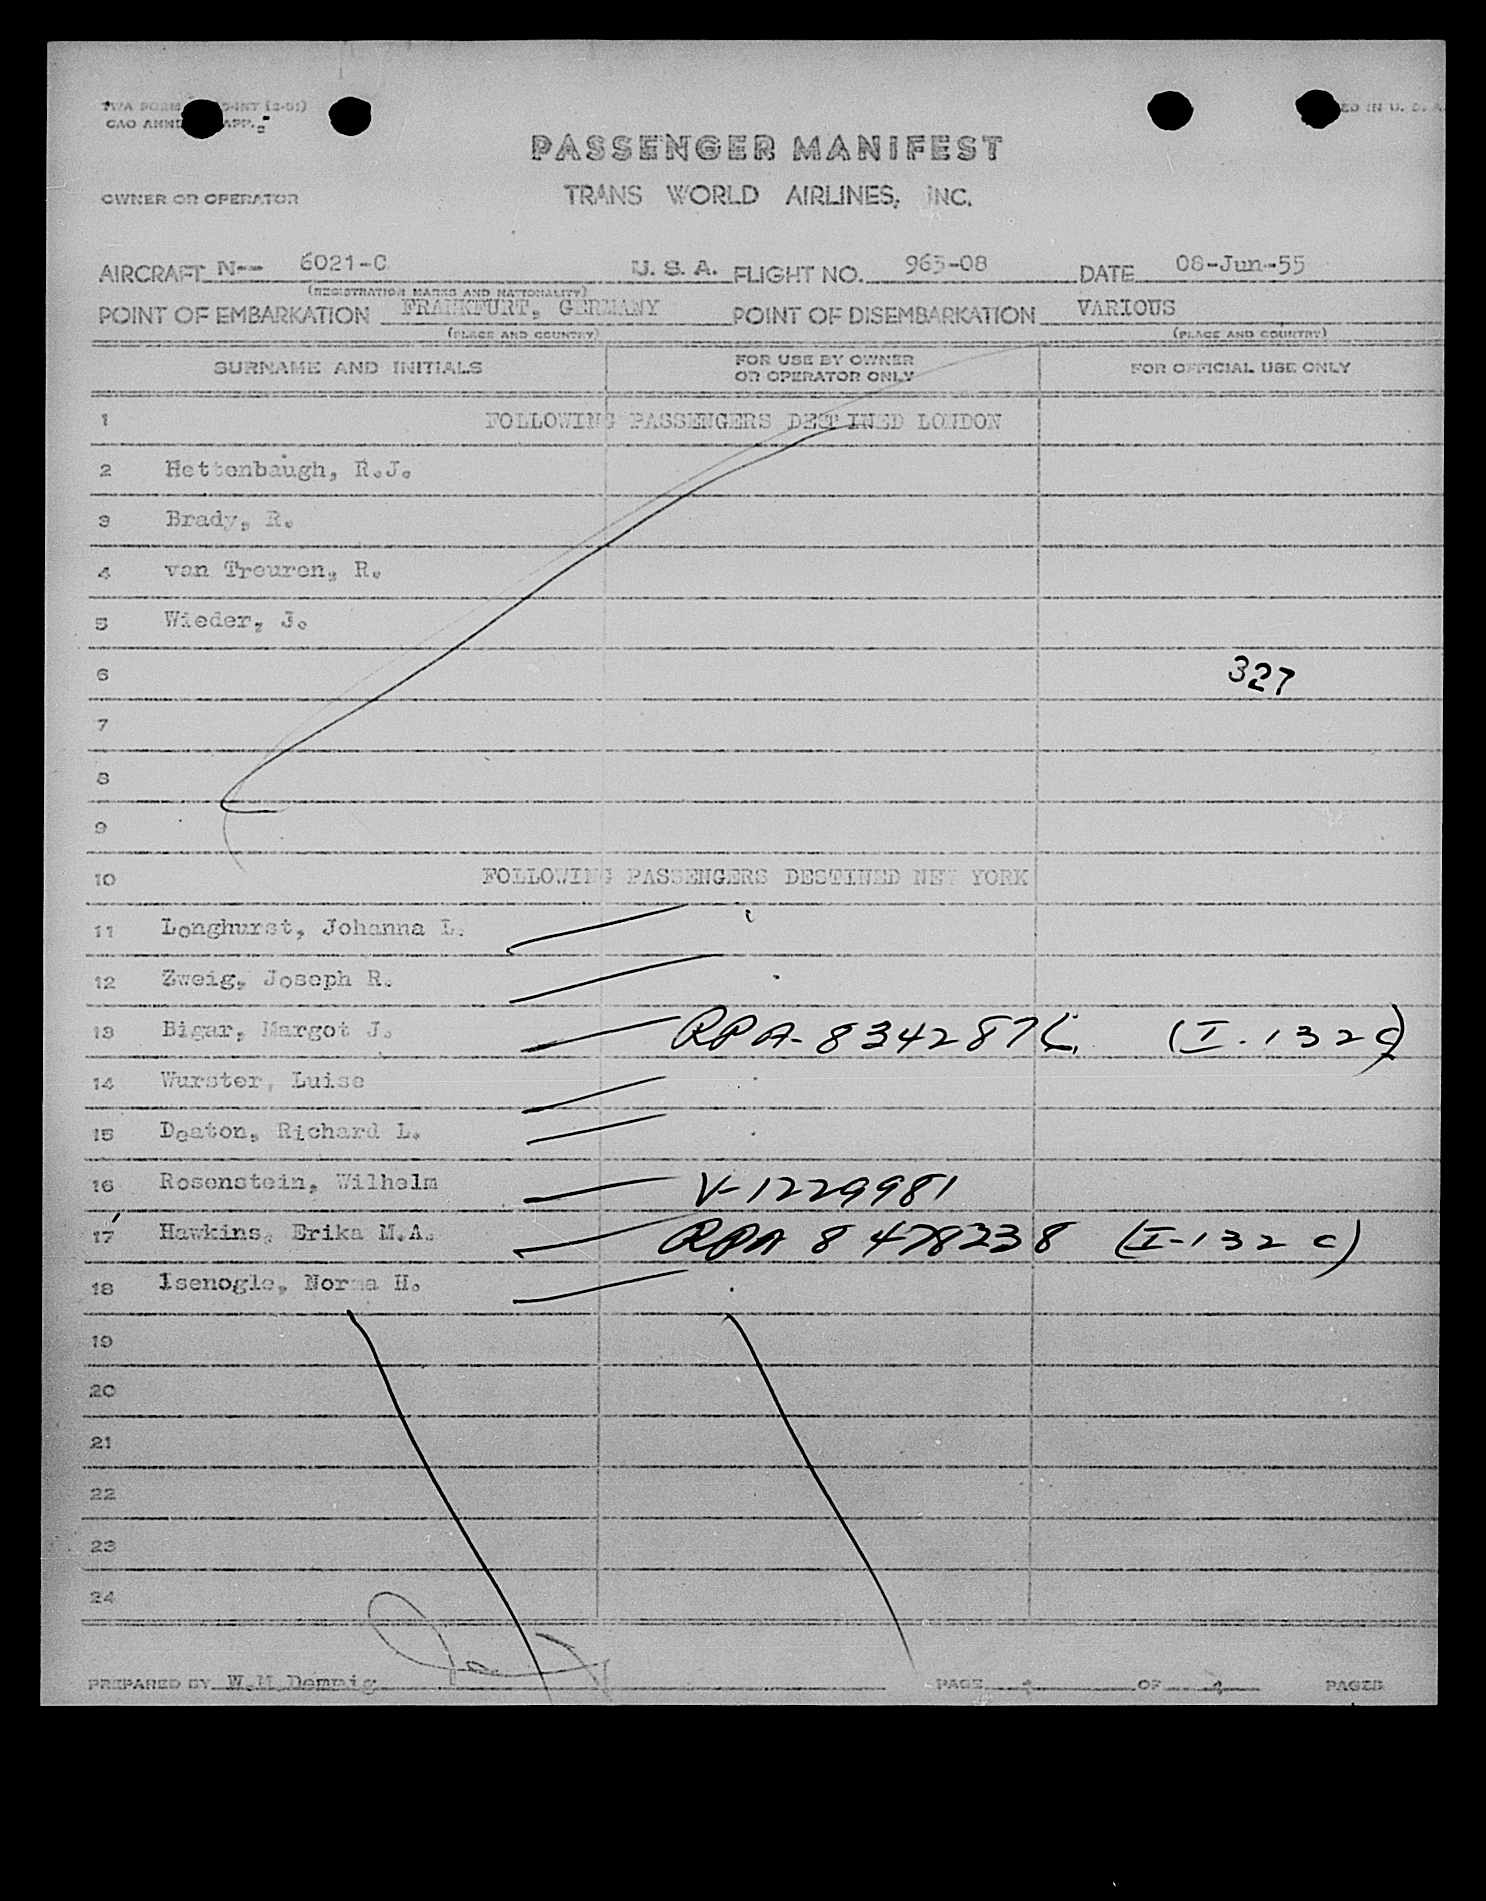 TWA FORM
PASSENGER MANIFEST
OWNER OR OPERATOR TRANS WORLD AIRLINES, INC.
AIRCRAFT N-- 6021-C U. S. A. FLIGHT NO. 963-08 DATE 08-Jun-55
(REGISTRATION MARKS AND NATIONALITY)
POINT OF EMBARKATION FRANKFURT, GERMANY POINT OF DISEMBARKATION VARIOUS
(PLACE AND COUNTRY) (PLACE AND COUNTRY)
SURNAME AND INITIALS FOR USE BY OWNER OR OPERATOR ONLY FOR OFFICIAL USE ONLY
1 FOLLOWING PASSENGERS DESTINED LONDON
2 Hettenbaugh, R.J.
3 Brady, R.
4 van Treuren, R.
5 Wieder, J.
6 327
7
8
9
10 FOLLOWING PASSENGERS DESTINED NEW YORK
11 Longhurst, Johanna L.
12 Zweig, Joseph R.
13 Bigar, Margot J. RPA-8342876 (I-132c)
14 Wurster, Luise
15 Deaton, Richard L.
16 Rosenstein, Wilhelm V-1229981
17 Hawkins, Erika M.A. RPA 8 478238 (I-132c)
18 Isenogle, Norma H.
19
20
21
22
23
24
PREPARED BY W.M.Dempig PAGE OF PAGES